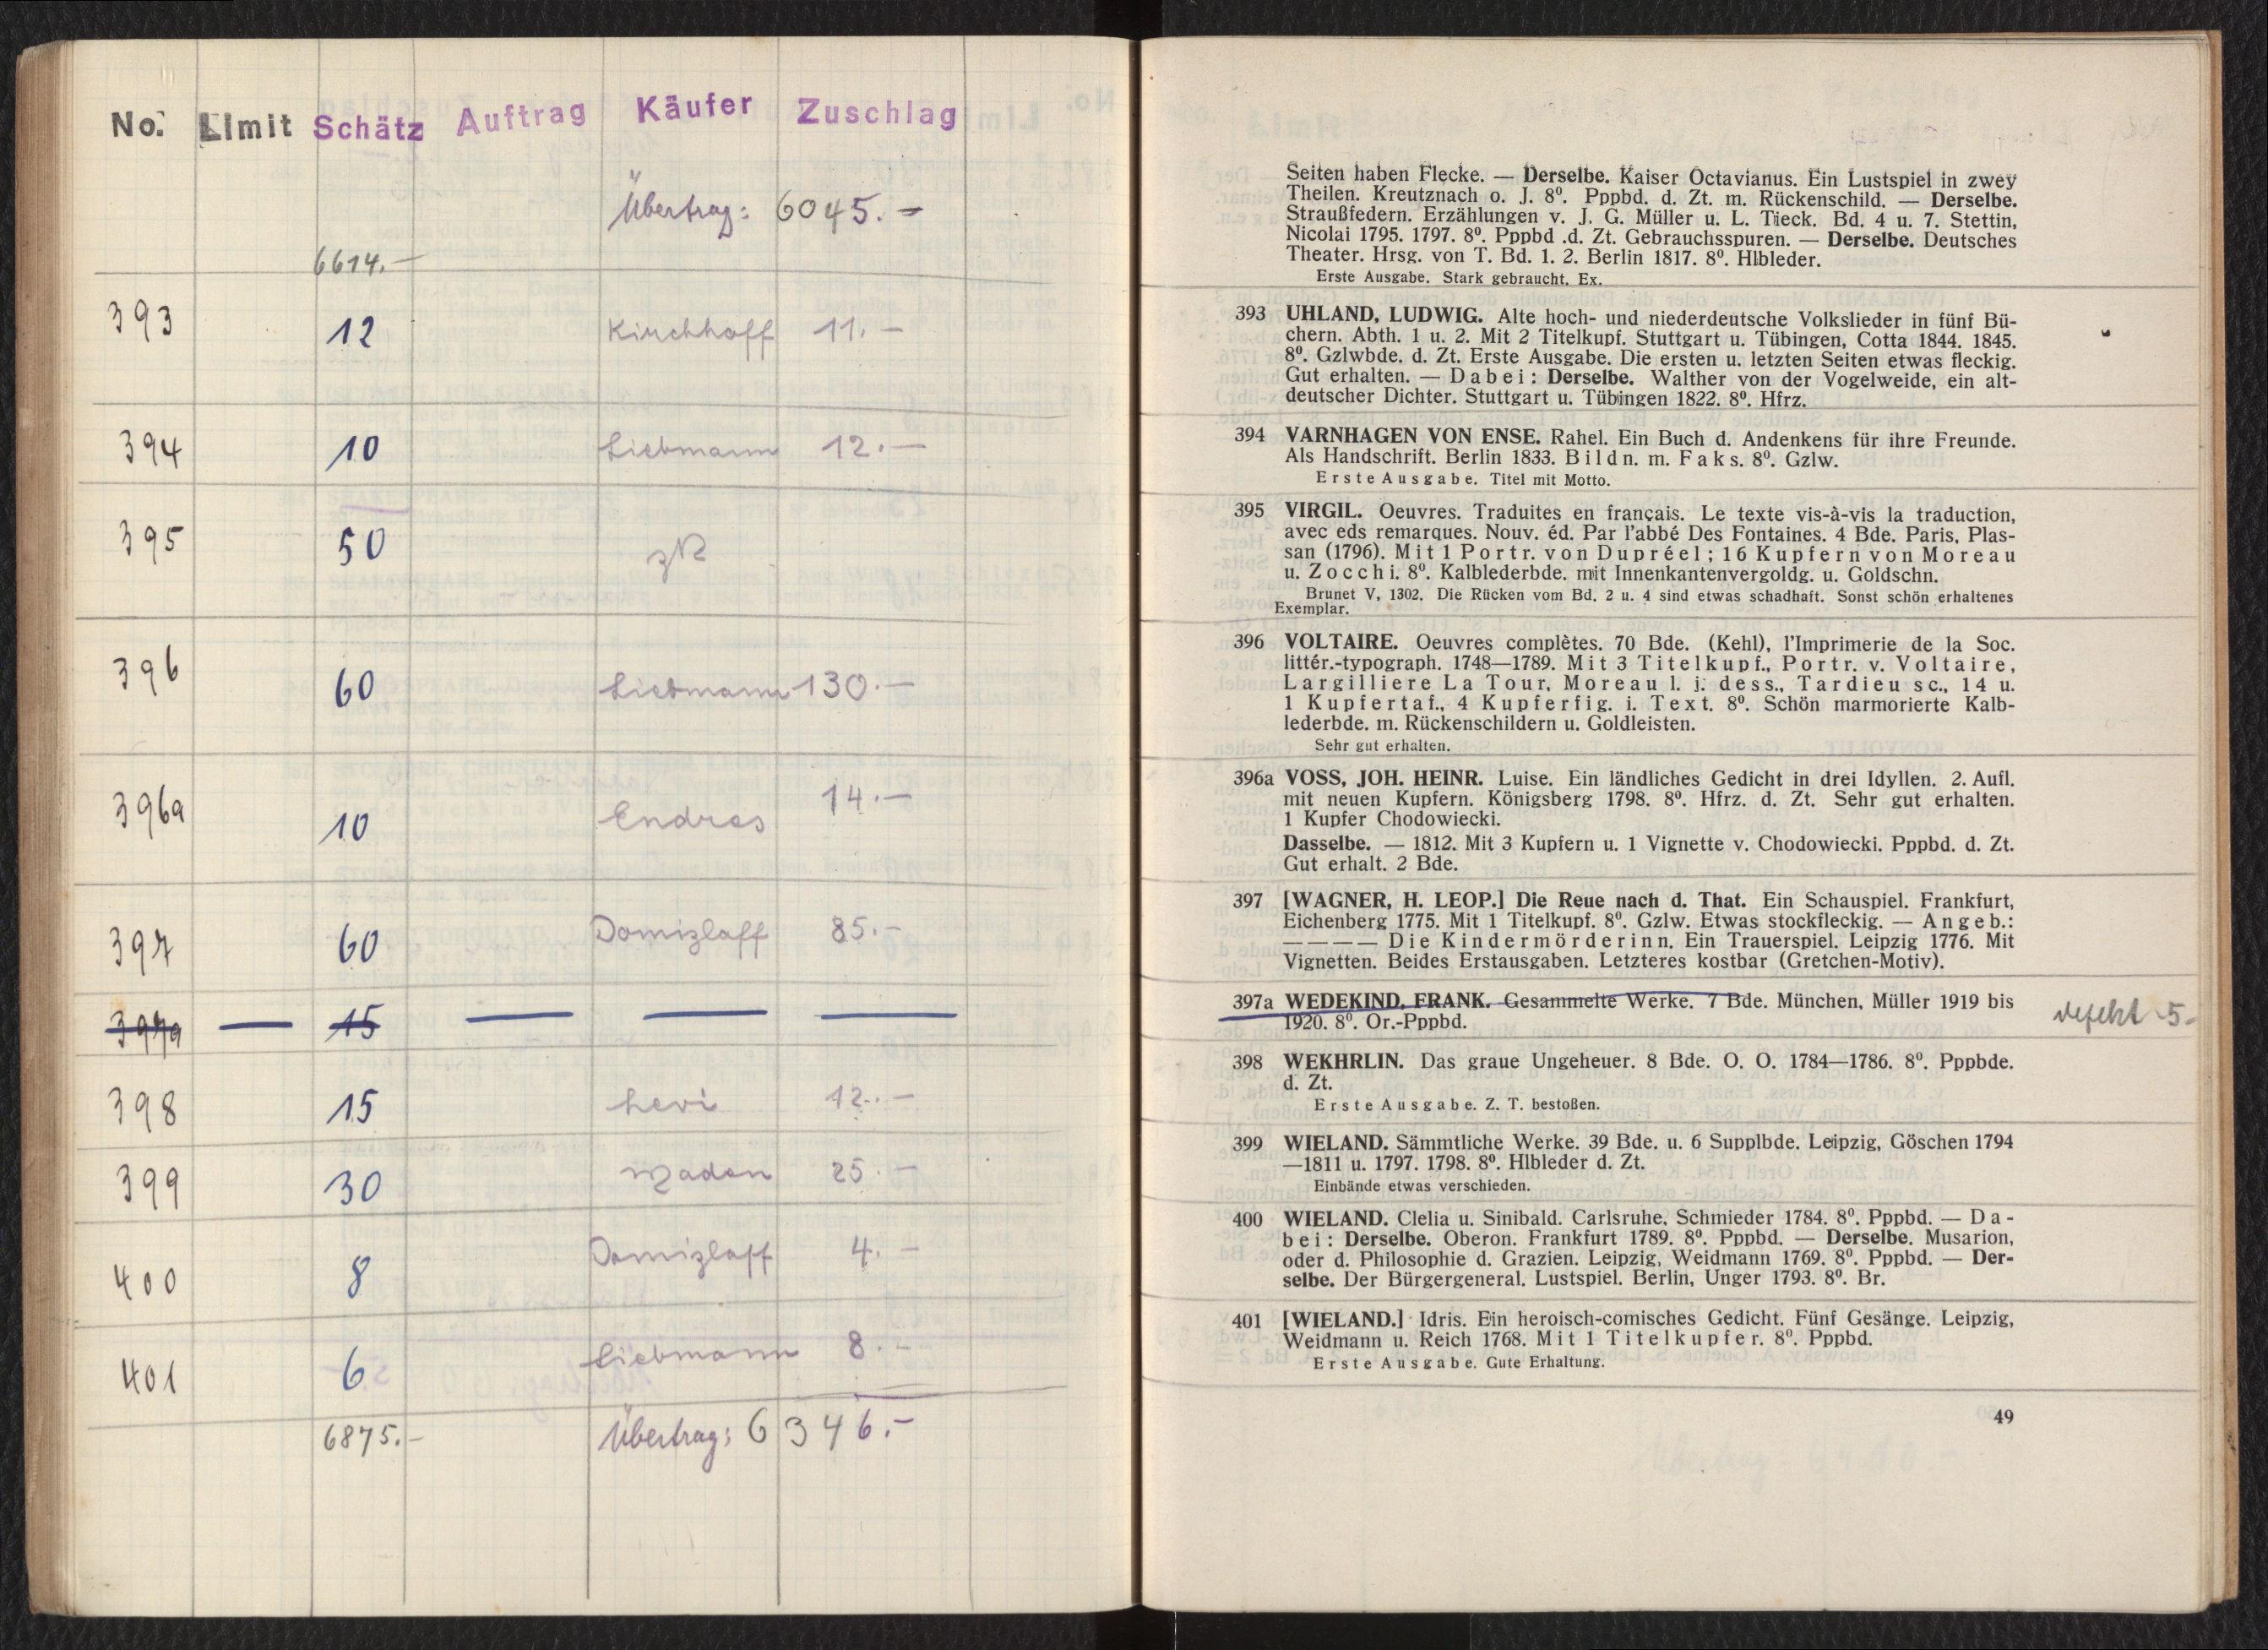 No. Limit Schätz Auftrag Käufer Zuschlag
Übertrag: 6045.-
6614.-
393 12 Kirchhoff 11.-
394 10 Liebmann 12.-
395 50 zR
396 60 Liebmann 130.-
396a 10 Endres 14.-
397 60 Domizlaff 85.-
397a — 15 — — —
398 15 Levi 12.-
399 30 25.-
400 8 Domizlaff 4.-
401 6 Liebmann 8.-
6875.- Übertrag: 6346.-
Seiten haben Flecke. — Derselbe. Kaiser Octavianus. Ein Lustspiel in zwey
Theilen. Kreutznach o. J. 8⁰. Pppbd. d. Zt. m. Rückenschild. — Derselbe.
Straußfedern. Erzählungen v. J. G. Müller u. L. Tieck. Bd. 4 u. 7. Stettin,
Nicolai 1795. 1797. 8⁰. Pppbd .d. Zt. Gebrauchsspuren. — Derselbe. Deutsches
Theater. Hrsg. von T. Bd. 1. 2. Berlin 1817. 8⁰. Hlbleder.
Erste Ausgabe. Stark gebraucht. Ex.
393 UHLAND, LUDWIG. Alte hoch- und niederdeutsche Volkslieder in fünf Bü-
chern. Abth. 1 u. 2. Mit 2 Titelkupf. Stuttgart u. Tübingen, Cotta 1844. 1845.
8⁰. Gzlwbde. d. Zt. Erste Ausgabe. Die ersten u. letzten Seiten etwas fleckig.
Gut erhalten. — Dabei: Derselbe. Walther von der Vogelweide, ein alt-
deutscher Dichter. Stuttgart u. Tübingen 1822. 8⁰. Hfrz.
394 VARNHAGEN VON ENSE. Rahel. Ein Buch d. Andenkens für ihre Freunde.
Als Handschrift. Berlin 1833. Bildn. m. Faks. 8⁰. Gzlw.
Erste Ausgabe. Titel mit Motto.
395 VIRGIL. Oeuvres. Traduites en français. Le texte vis-à-vis la traduction,
avec eds remarques. Nouv. éd. Par l'abbé Des Fontaines. 4 Bde. Paris, Plas-
san (1796). Mit 1 Portr. von Dupréel; 16 Kupfern von Moreau
u. Zocchi. 8⁰. Kalblederbde. mit Innenkantenvergoldg. u. Goldschn.
Brunet V, 1302. Die Rücken vom Bd. 2 u. 4 sind etwas schadhaft. Sonst schön erhaltenes
Exemplar.
396 VOLTAIRE. Oeuvres complètes. 70 Bde. (Kehl), l'Imprimerie de la Soc.
littér.-typograph. 1748—1789. Mit 3 Titelkupf., Portr. v. Voltaire,
Largilliere La Tour, Moreau l. j. dess., Tardieu sc., 14 u.
1 Kupfertaf., 4 Kupferfig. i. Text. 8⁰. Schön marmorierte Kalb-
lederbde. m. Rückenschildern u. Goldleisten.
Sehr gut erhalten.
396a VOSS, JOH. HEINR. Luise. Ein ländliches Gedicht in drei Idyllen. 2. Aufl.
mit neuen Kupfern. Königsberg 1798. 8⁰. Hfrz. d. Zt. Sehr gut erhalten.
1 Kupfer Chodowiecki.
Dasselbe. — 1812. Mit 3 Kupfern u. 1 Vignette v. Chodowiecki. Pppbd. d. Zt.
Gut erhalt. 2 Bde.
397 [WAGNER, H. LEOP.] Die Reue nach d. That. Ein Schauspiel. Frankfurt,
Eichenberg 1775. Mit 1 Titelkupf. 8⁰. Gzlw. Etwas stockfleckig. — Angeb.:
———— Die Kindermörderinn. Ein Trauerspiel. Leipzig 1776. Mit
Vignetten. Beides Erstausgaben. Letzteres kostbar (Gretchen-Motiv).
397a WEDEKIND, FRANK. Gesammelte Werke. 7 Bde. München, Müller 1919 bis
1920. 8⁰. Or.-Pppbd.
defekt 5.-
398 WEKHRLIN. Das graue Ungeheuer. 8 Bde. O. O. 1784—1786. 8⁰. Pppbde.
d. Zt.
Erste Ausgabe. Z. T. bestoßen.
399 WIELAND. Sämmtliche Werke. 39 Bde. u. 6 Supplbde. Leipzig, Göschen 1794
—1811 u. 1797. 1798. 8⁰. Hlbleder d. Zt.
Einbände etwas verschieden.
400 WIELAND. Clelia u. Sinibald. Carlsruhe, Schmieder 1784. 8⁰. Pppbd. — Da-
bei: Derselbe. Oberon. Frankfurt 1789. 8⁰. Pppbd. — Derselbe. Musarion,
oder d. Philosophie d. Grazien. Leipzig, Weidmann 1769. 8⁰. Pppbd. — Der-
selbe. Der Bürgergeneral. Lustspiel. Berlin, Unger 1793. 8⁰. Br.
401 [WIELAND.] Idris. Ein heroisch-comisches Gedicht. Fünf Gesänge. Leipzig,
Weidmann u. Reich 1768. Mit 1 Titelkupfer. 8⁰. Pppbd.
Erste Ausgabe. Gute Erhaltung.
49